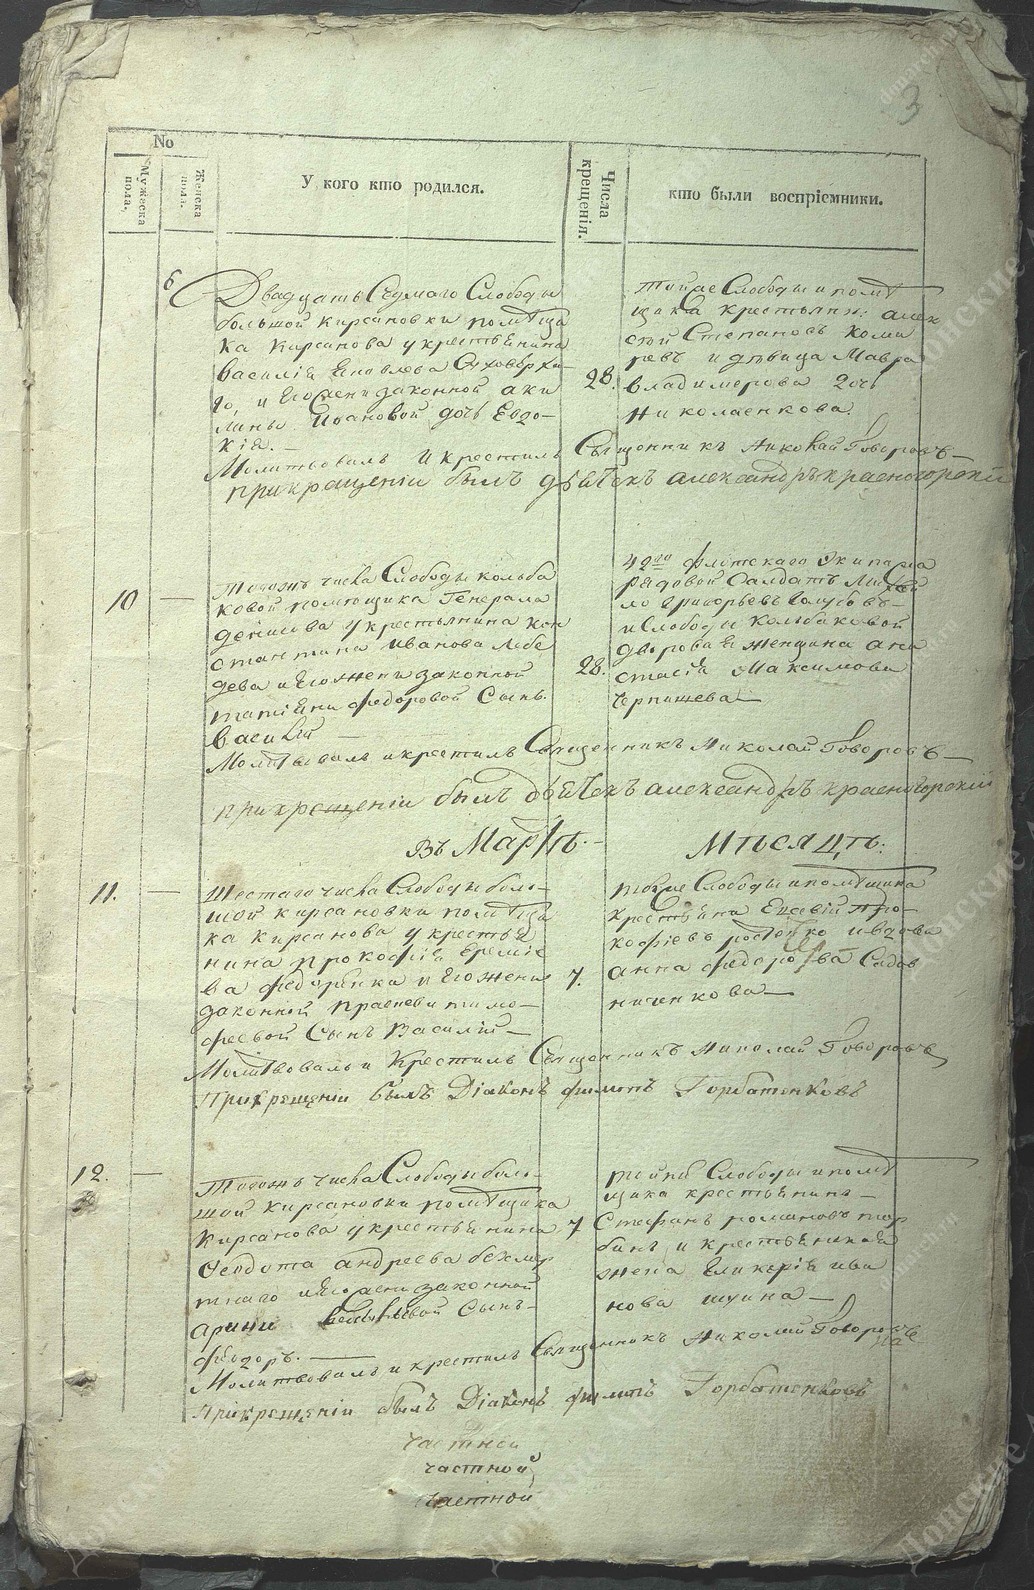 3
No
Мужеска пола.
Женска пола.
У кого кто родился.
Числа крещенія.
кто были воспріемники.
6
Двадцать Седмаго Слободы
большой кирсановки помѣщи
ка кирсанова у крестьянина
василія яковлева
го, и Его жены законной аки
лины Ивановой дочь Евдо-
кія.
28.
тойже Слободы и помѣ
щика крестьянин: алек
сѣй Степановъ кома
ревъ и дѣвица Мавра
владимерова дочь
Николаенкова.
Молитвовалъ и крестилъ Священникъ Николай Говоровъ
при крещеніи былъ дьячекъ александръ красногорскій
10
Тогожъ числа Слободы колпа
ковой помѣщика Генерала
денисова у крестьянина кон
стантина иванова лебе
дева и Его жены законной
татіяны федоровой Сынъ
василій
28.
42го флотскаго Экипажа
рядовой Салдатъ Михай
ло Григорьевъ Голубовъ
и Слободы Колпаковой
дворовая женщина ана
стасія Максимова
Чернышева
Молитвовалъ и крестилъ Священникъ Николай Говоровъ
при крещеніи былъ дьячекъ александръ красногорскій
Въ Мартѣ. Мѣсяцѣ:
11.
Шестаго числа Слободы боль-
шой кирсановки помѣщи
ка кирсанова у крестья
нина прокофія Еремѣе
ва федоренка и Его жены
законной прасковьи тимо-
феевой Сынъ Василій
7.
тойже Слободы и помѣщика
крестьянинъ Евсевій про-
кофіевъ и вдова
анна федорова Садов
ниченкова
Молитвовалъ и Крестилъ Священникъ Николай Говоровъ
При крещеніи былъ Діаконъ филипъ Горбатенковъ
12.
Тогожъ числа Слободы боль-
шой кирсановки помѣщика
кирсанова у крестьянина
Ѳеодота андреева безмер
тнаго и Его жены законной
арины Сынъ
федоръ.
7
тойже Слободы и помѣ
щика крестьянинъ
Стефанъ романовъ тор
бинъ и крестьянина
жена Гликерія ива
нова шуина
Молитвовалъ и крестилъ Священникъ Николай Говоровъ
При крещеніи былъ Діаконъ филипъ Горбатенковъ
частной
частной
частной